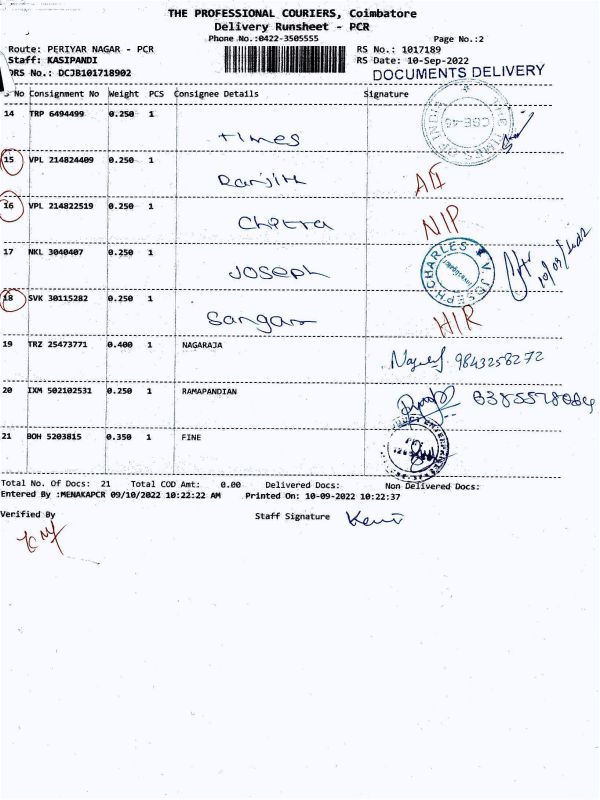 THE PROFESSIONAL COURIERS, Coimbatore
Delivery Runsheet - PCR
Phone No.:0422-3505555 Page No.:2
Route: PERIYAR NAGAR - PCR RS No.: 1017189
Staff: KASIPANDI RS Date: 10-Sep-2022
DRS No.: DCJB101718902 DOCUMENTS DELIVERY
S No Consignment No Weight PCS Consignee Details Signature
14 TRP 6494499 0.250 1
Times
THE TIMES OF INDIA CBE-40
15 VPL 214824409 0.250 1
Ranjith
16 VPL 214822519 0.250 1
Chitra NIP
17 NKL 3040407 0.250 1
Joseph V. JOSEPH CHARLES
18 SVK 30115282 0.250 1
Sangam HIR
19 TRZ 25473771 0.400 1 NAGARAJA
9843258272
20 IXM 502102531 0.250 1 RAMAPANDIAN
21 BOH 5203815 0.350 1 FINE
Total No. Of Docs: 21 Total COD Amt: 0.00 Delivered Docs: Non Delivered Docs:
Entered By :MENAKAPCR 09/10/2022 10:22:22 AM Printed On: 10-09-2022 10:22:37
Verified By Staff Signature